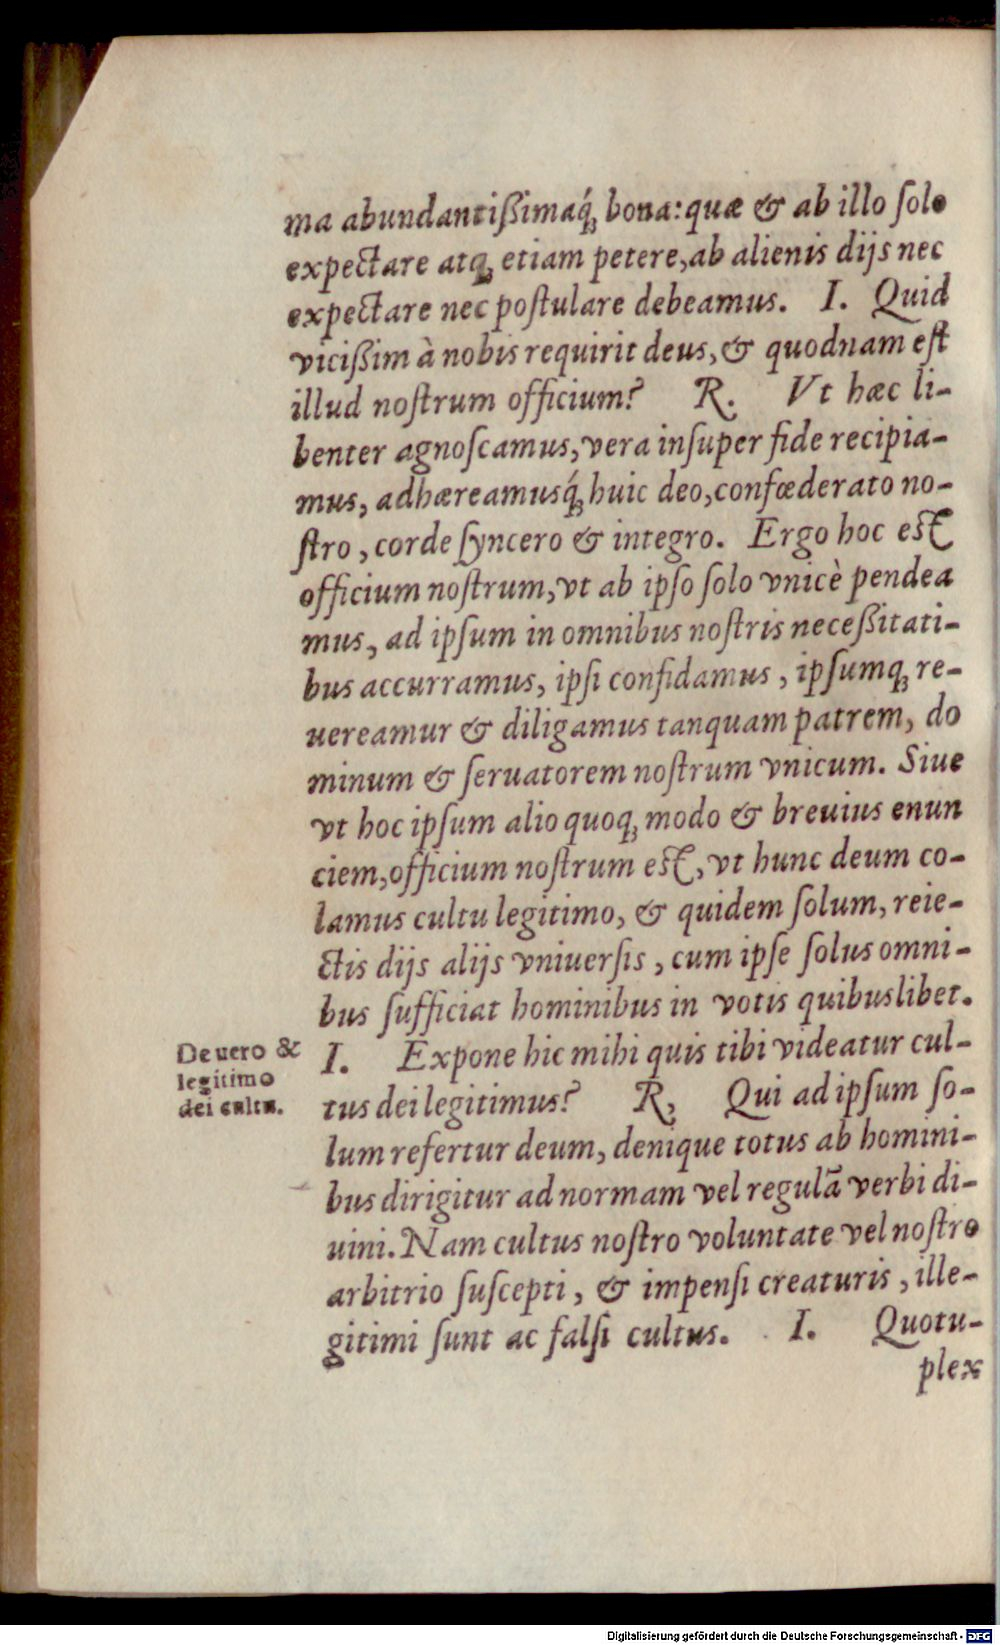 ma abundantißimaq́ꝫ bona: quæ & ab illo ſolo
expectare atqꝫ etiam petere, ab alienis dijs nec
expectare nec poſtulare debeamus. I. Quid
viciſßim à nobis requirit deus, & quodnam eſt
illud noſtrum officium? R. Vt hæc li-
benter agnoſcamus, vera inſuper fide recipia-
mus, adhæreamusq́ꝫ huic deo, confœderato no-
ſtro, corde ſyncero & integro. Ergo hoc eſt
officium noſtrum, vt ab ipſo ſolo vnicè pendea
mus, ad ipſum in omnibus noſtris neceßitati-
bus accurramus, ipſi confidamus, ipſumqꝫ re-
uereamur & diligamus tanquam patrem, do
minum & ſeruatorem noſtrum vnicum. Siue
vt hoc ipſum alio quoqꝫ modo & breuius enun
ciem, officium noſtrum eſt, vt hunc deum co-
lamus cultu legitimo, & quidem ſolum, reie-
ctis dijs alijs vniuerſis, cum ipſe ſolus omni-
bus ſufficiat hominibus in votis quibuslibet.
De uero &
legitimo
dei cultu.
I. Expone hic mihi quis tibi videatur cul-
tus dei legitimus? R, Qui ad ipſum ſo-
lum refertur deum, denique totus ab homini-
bus dirigitur ad normam vel regulā verbi di-
uini. Nam cultus noſtro voluntate vel noſtro
arbitrio ſuſcepti, & impenſi creaturis, ille-
gitimi ſunt ac falſi cultus. I. Quotu-
plex
Digitalisierung gefördert durch die Deutsche Forschungsgemeinschaft - DFG